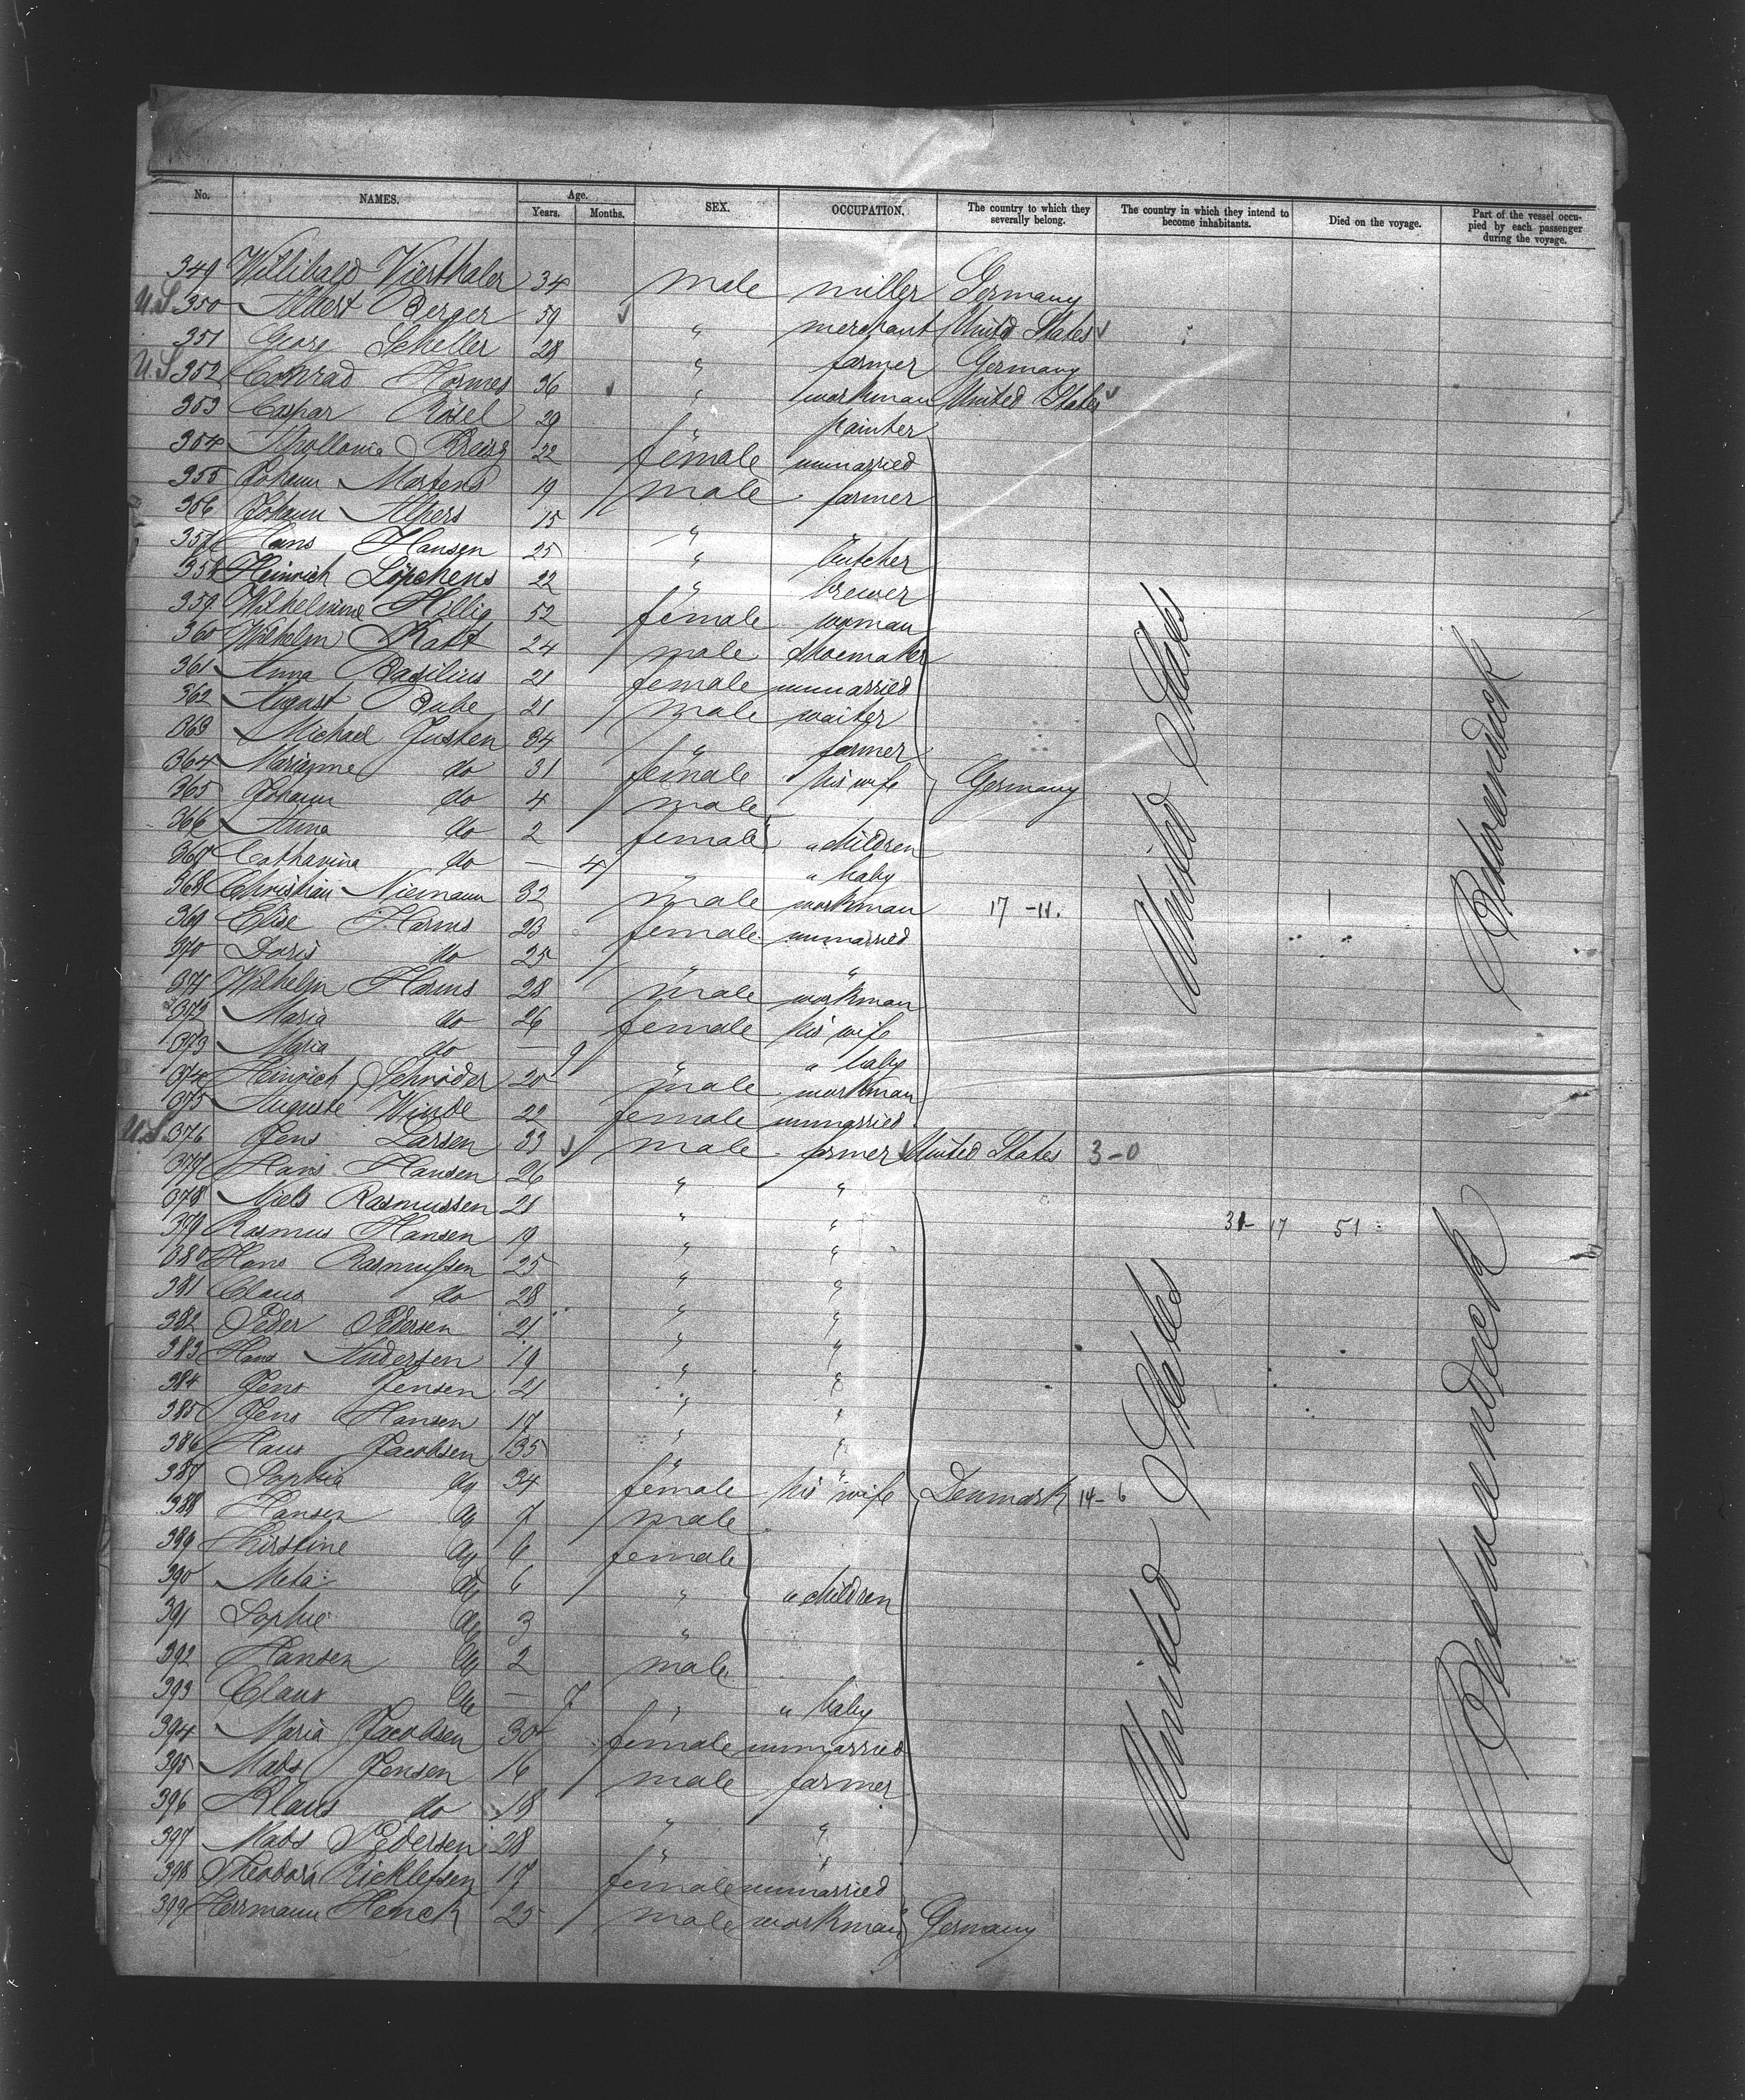 No. NAMES. Age. Years. Months. SEX. OCCUPATION. The country to which they severally belong. The country in which they intend to become inhabitants. Died on the voyage. Part of the vessel occupied by each passenger during the voyage.
349 Willibald Vierthaler 34 male miller Germany
U.S 350 Albert Berger 59 " merchant United States
351 Georg Scheller 28 " farmer Germany
U.S 352 Conrad Hormes 36 " workman United States
353 Caspar Rösel 29 " painter
354 Apollonia 22 female unmarried
355 Johann Martens 19 male farmer
356 Johann Alpers 15 " "
357 Hans Hansen 25 " butcher
358 Heinrich Löpchens 22 " brewer
359 Wilhelmine Hillig 52 female woman
360 Wilhelm Rabt 24 male shoemaker
361 Anna Basilius 21 female unmarried
362 August Bube 21 male waiter
363 Michael Justen 34 " farmer
364 Marianne do 31 female his wife Germany
365 Johann do 4 male
366 Anna do 2 female " children
367 Catharina do — 4 " " baby
368 Christian Niemann 32 male workman 17-11.
369 Elise Harms 23 female unmarried
370 Doris do 25 " "
371 Wilhelm Harms 28 male workman
372 Maria do 26 female his wife
373 Maria do — 9 " " baby
374 Heinrich Schröder 20 male workman
375 Auguste Winde 22 female unmarried
U.S. 376 Jens Larsen 33 male farmer United States 3-0
377 Hans Hansen 26 " "
378 Niels Rasmussen 21 " "
379 Rasmus Hansen 19 " " 31- 17 51
380 Hans Rasmussen 25 " "
381 Claus do 28 " "
382 Peder Pedersen 21 " "
383 Hans Andersen 19 " "
384 Jens Jensen 21 " "
385 Jens Hansen 17 " "
386 Hans Jacobsen 35 " "
387 Sophia do 34 female his wife Denmark 14-6
388 Hansen do 7 male
389 Kirstine do 6 female
390 Meta do 6 " " children
391 Sophie do 3 "
392 Hansen do 2 male
393 Claus do — 7 " " baby
394 Maria Jacobsen 30 female unmarried
395 Mads Jensen 16 male farmer
396 Klaus do 18 " "
397 Mads Pedersen 28 " "
398 Theodora Ricklefsen 17 female unmarried
399 Herrmann Henck 25 male workman Germany
United States
Betweendeck
United States
Betweendeck